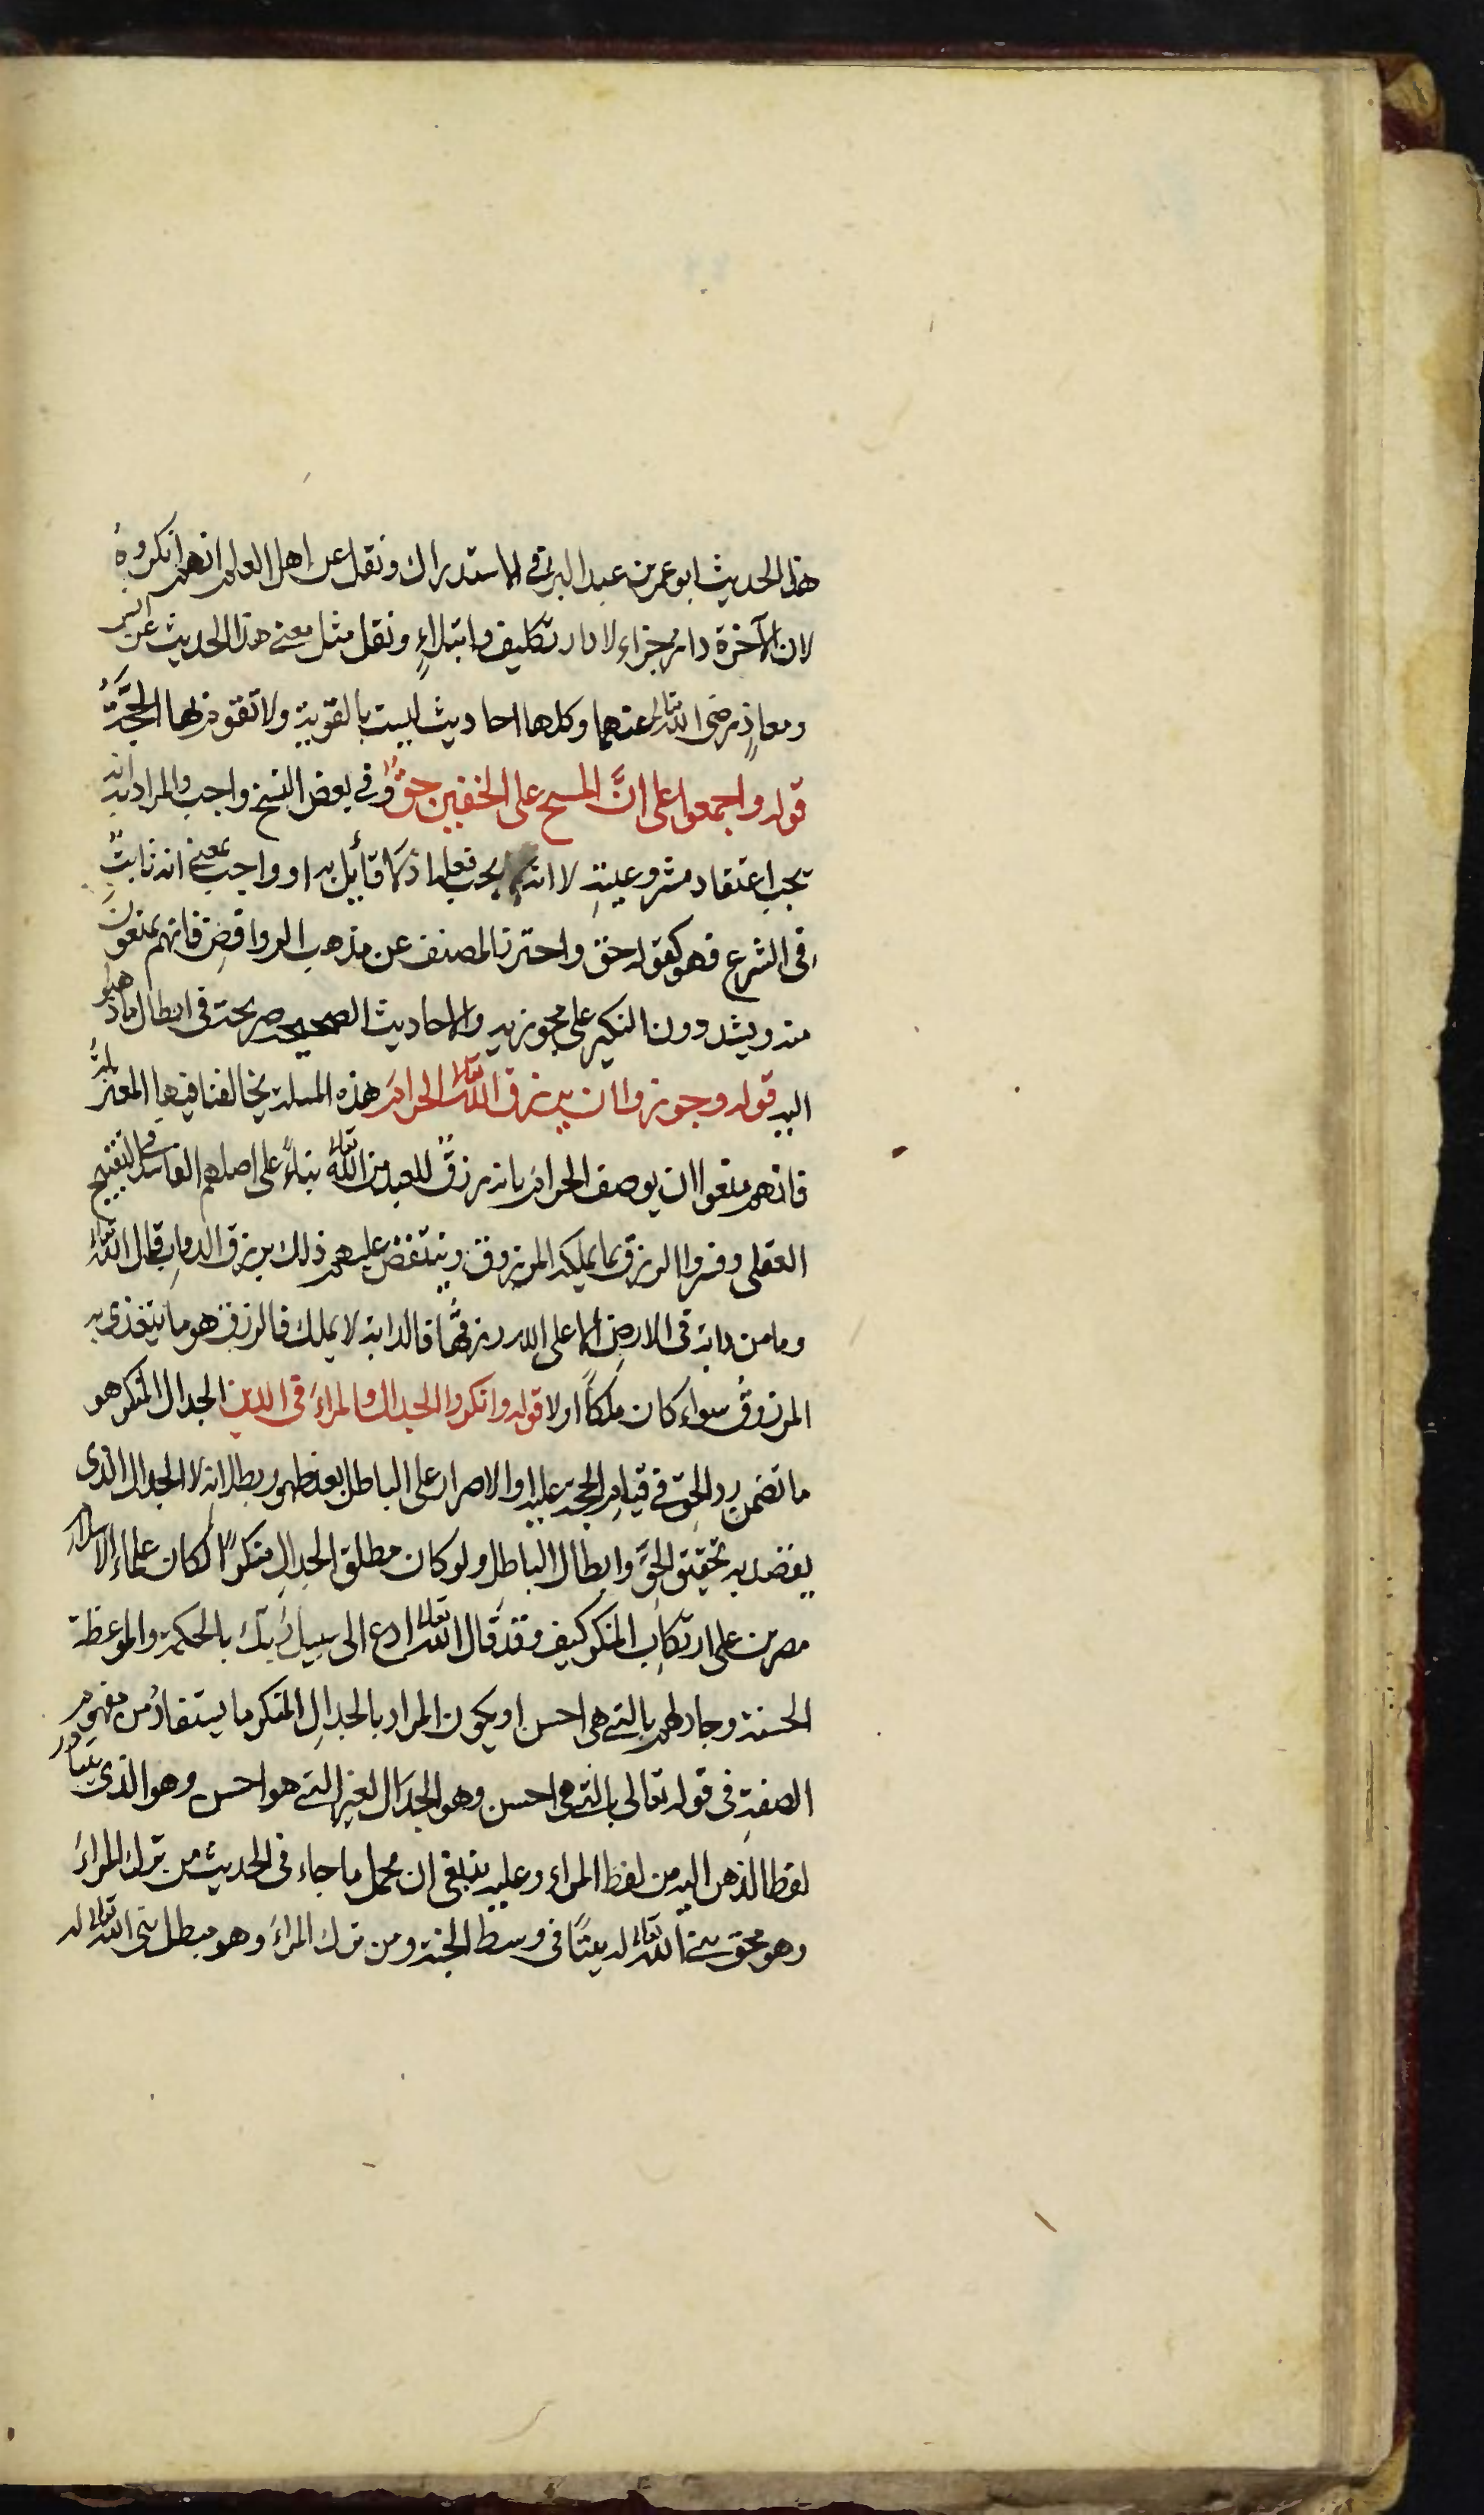 هذا الحديث ابو عمر بن عبد البر في الاستدراك ونقل عن اهل العلم انهم انكروهُ
لان الآخرة دار جزاء لا دار تكليف وابتلاءٍ ونقل مثل معنى هذا الحديث عن انس
ومعاذٍ رضى الله تعالى عنهما وكلها احاديث ليست بالقوية ولا تقوم بها الحجَّةُ
قوله واجمعوا على انَّ المسح على الخفين حقٌّ وفي بعض النسخ واجب والمراد به انه
يجب اعتقاد مشروعيتهِ لا انه يجب فعله اذ لا قائل به او واجب بمعنى انه ثابتٌ
فى الشرع فهو كقوله حق واحترز المصنف عن مذهب الروافضِ فانهم يمنعونَ
منه ويشددون النكير على مجوزيه والاحاديث الصحيحة صريحة فى ابطال ما ذهبوا
اليه قوله وجوزوا ان يرزق الله تعالى الحرامَ هذه المسلة يخالفنا فيها المعتزلةُ
فانهم منعوا ان يوصف الحرام بانه رزقٌ للعبد من الله تعالى بناءً على اصلهم الفاسد فى التقبيح
العقلى وفسروا الرزق بما يملكه المرزوق وينتقض عليهم ذلك برزق الدوابِ قال الله تعالى
وما من دابة فى الارضِ الا على الله رزقُها فالدابة لا يملك فالرزق هو ما يتغذى به
المرزوقُ سواء كان ملكاً اولا قوله وانكروا الجدال والمراءَ فى الدين الجدال المنكر هو
ما تضمن رد الحق فى قيامِ الحجة عليه او الاصرار على الباطل بعد ظهور بطلانه لا الجدال الذى
يقصد به تحقيق الحقَّ وابطال الباطل ولو كان مطلق الجدالِ منكرًا لكان علماءُ الاسلام
مصرين على ارتكابِ المنكر كيف وقد قال الله تعالى ادع الى سبيل ربّك بالحكمة والموعظة
الحسنة وجادلهم بالتى هى احسن او يكون المراد بالجدالِ المنكر ما يستفادُ من مفهوم
الصفةِ فى قوله تعالى بالتى هى احسن وهو الجدال لغير التى هو احسن وهو الذى يتبادر
لفظا الذهن اليه من لفظ المراء وعليه ينبغى ان محمل ما جاء فى الحديث من ترك المراءَ
وهو محق بنى الله تعالى له بيتًا فى وسط الجنة ومن ترك المراءَ وهو مبطل بنى الله تعالى له